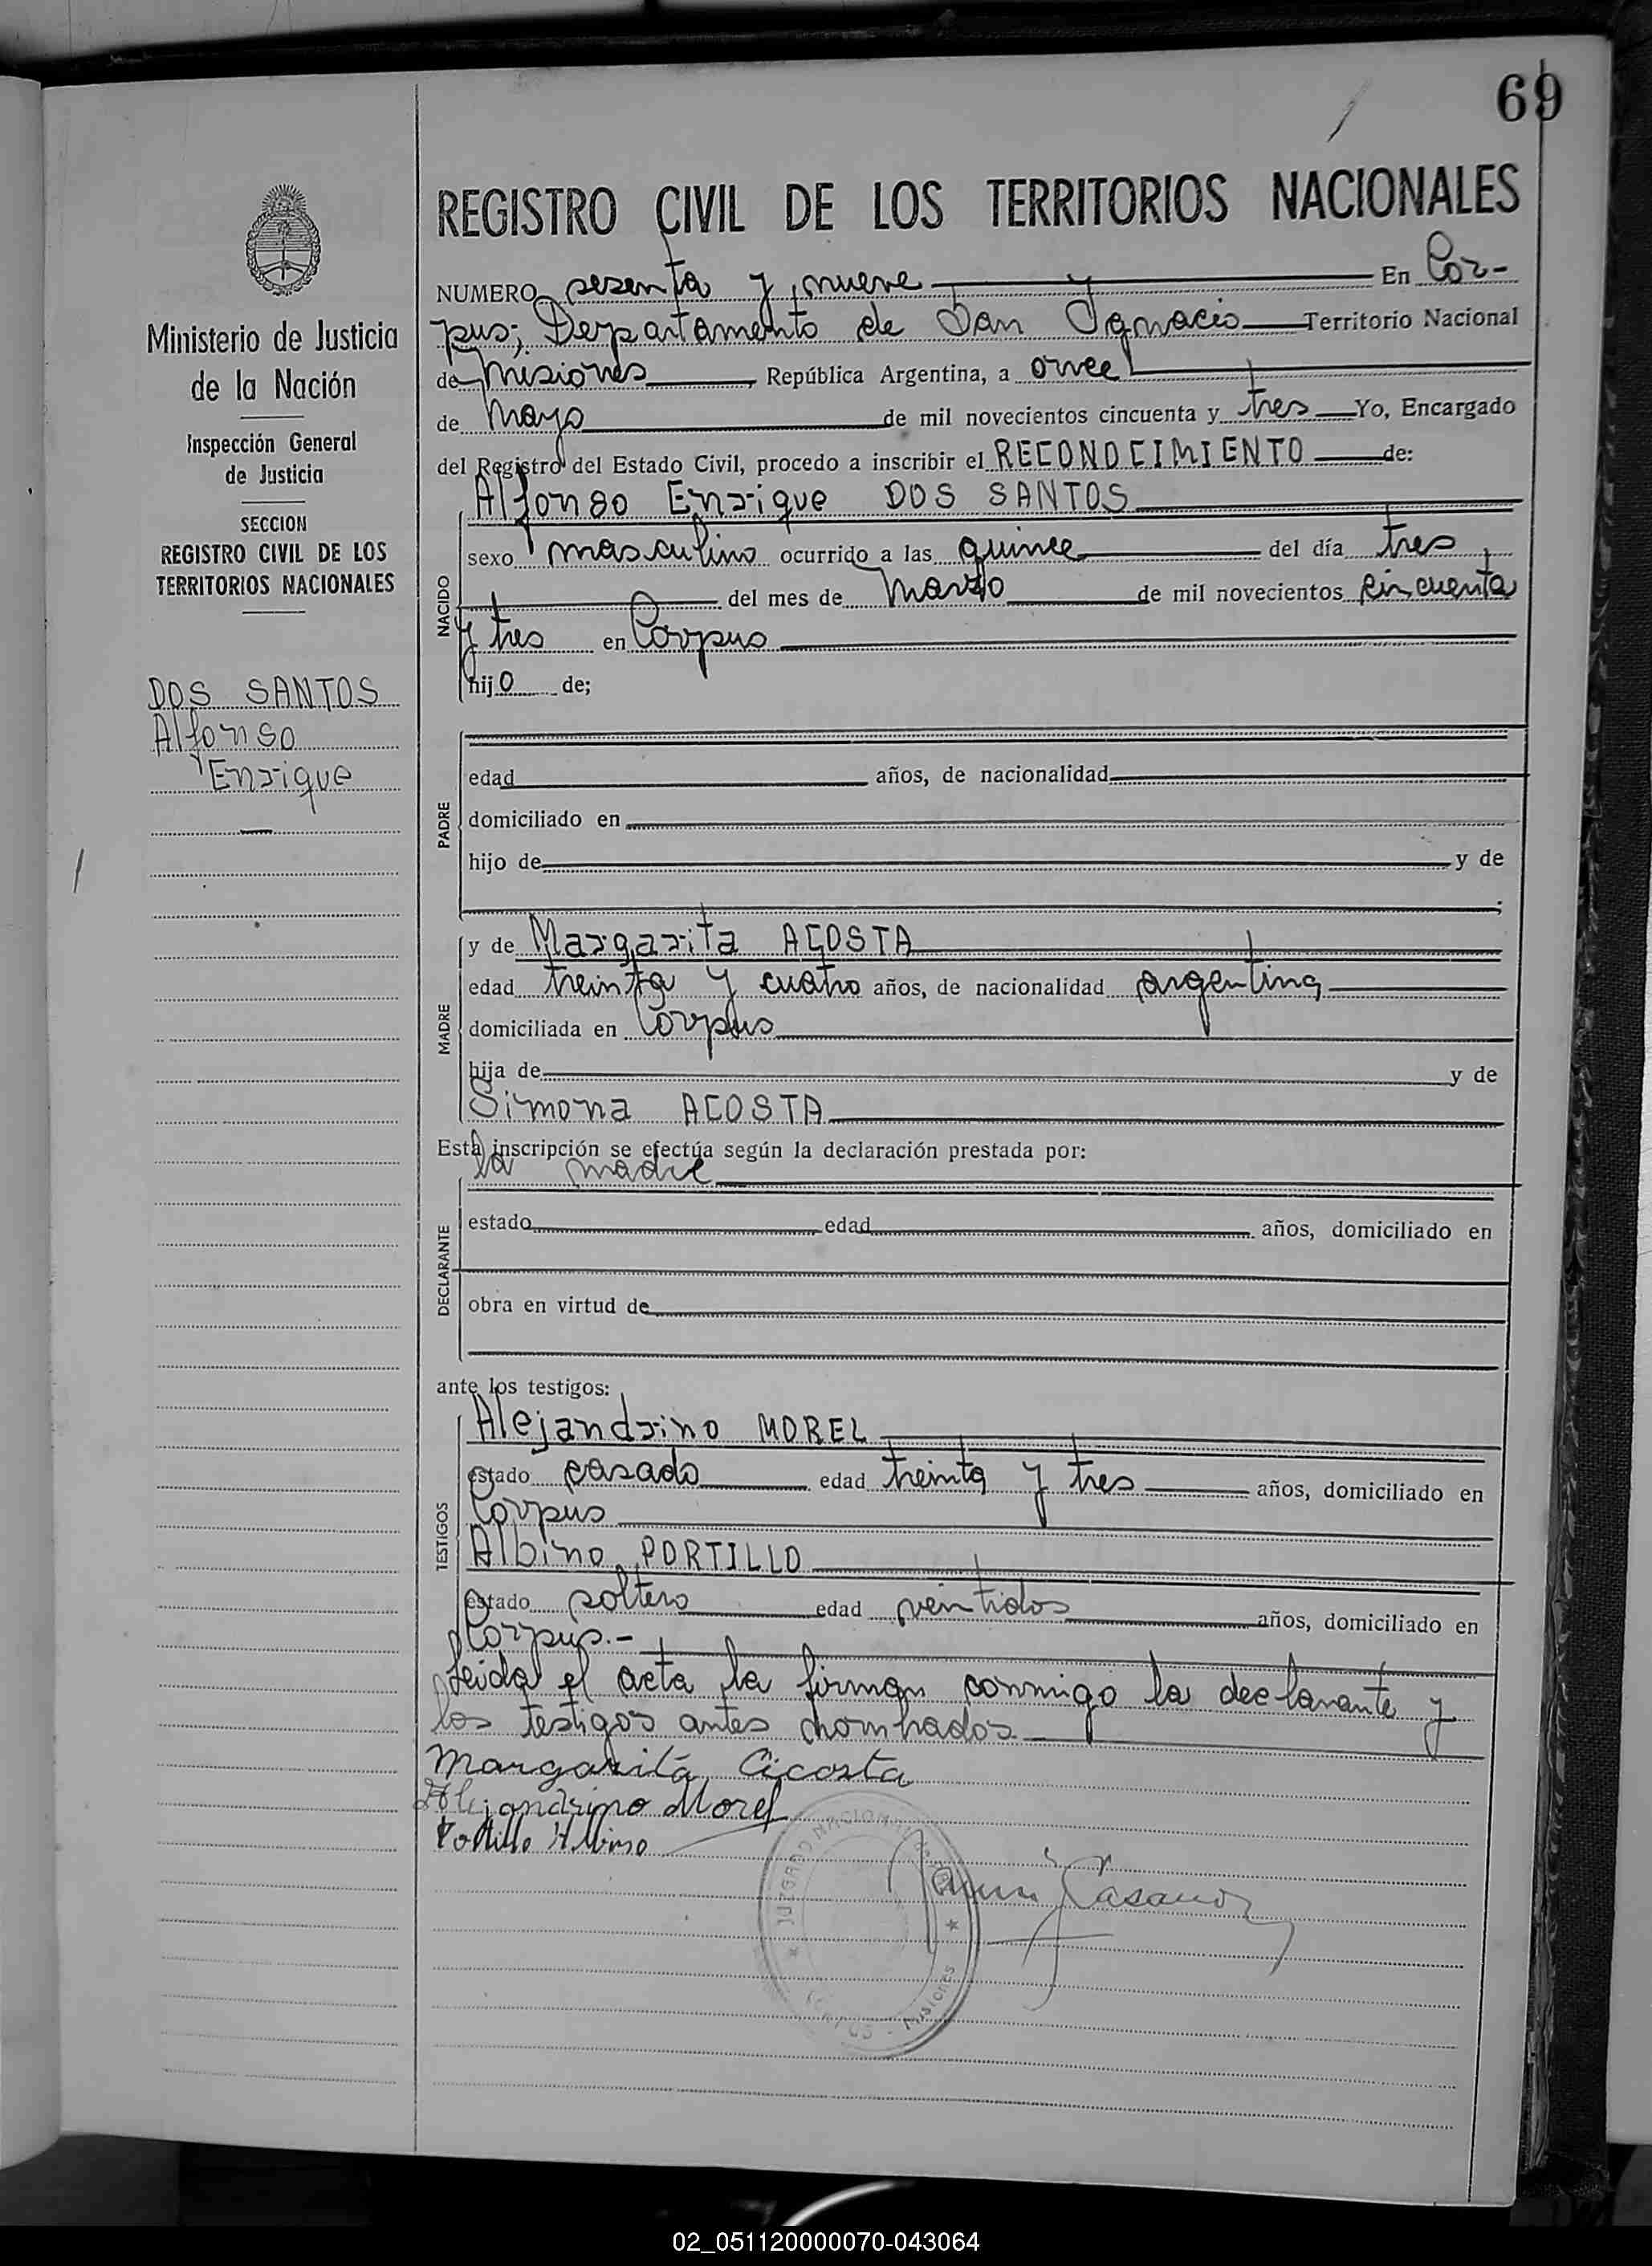 69
REGISTRO CIVIL DE LOS TERRITORIOS NACIONALES
NUMERO sesenta y nueve En Cor-
pus; Departamento de San Ignacio Territorio Nacional
de Misiones, República Argentina, a once
de Mayo de mil novecientos cincuenta y tres Yo, Encargado
del Registro del Estado Civil, procedo a inscribir el RECONOCIMIENTO de:
Ministerio de Justicia
de la Nación
Inspección General
de Justicia
SECCION
REGISTRO CIVIL DE LOS
TERRITORIOS NACIONALES
DOS SANTOS
Alfonso
Enrique
NACIDO
Alfonso Enrique DOS SANTOS
sexo masculino ocurrido a las quince del día tres,
del mes de Marzo de mil novecientos cincuenta
y tres en Corpus
hijo de;
PADRE
edad años, de nacionalidad
domiciliado en
hijo de y de
;
MADRE
y de Margarita ACOSTA
edad treinta y cuatro años, de nacionalidad argentina
domiciliada en Corpus
hija de y de
Simona ACOSTA
Esta inscripción se efectúa según la declaración prestada por:
la madre
DECLARANTE
estado edad años, domiciliado en
obra en virtud de
ante los testigos:
TESTIGOS
Alejandrino MOREL
estado casado edad treinta y tres años, domiciliado en
Corpus
Albino PORTILLO
estado soltero edad veintidos años, domiciliado en
Corpus.-
Leida el acta la firman conmigo la declarante y
los testigos antes nombrados
Margarita Acosta
Alejandrino Morel
Portillo Albino
JUZGADO NACIONAL DE PAZ
CORPUS - Misiones
02_051120000070-043064